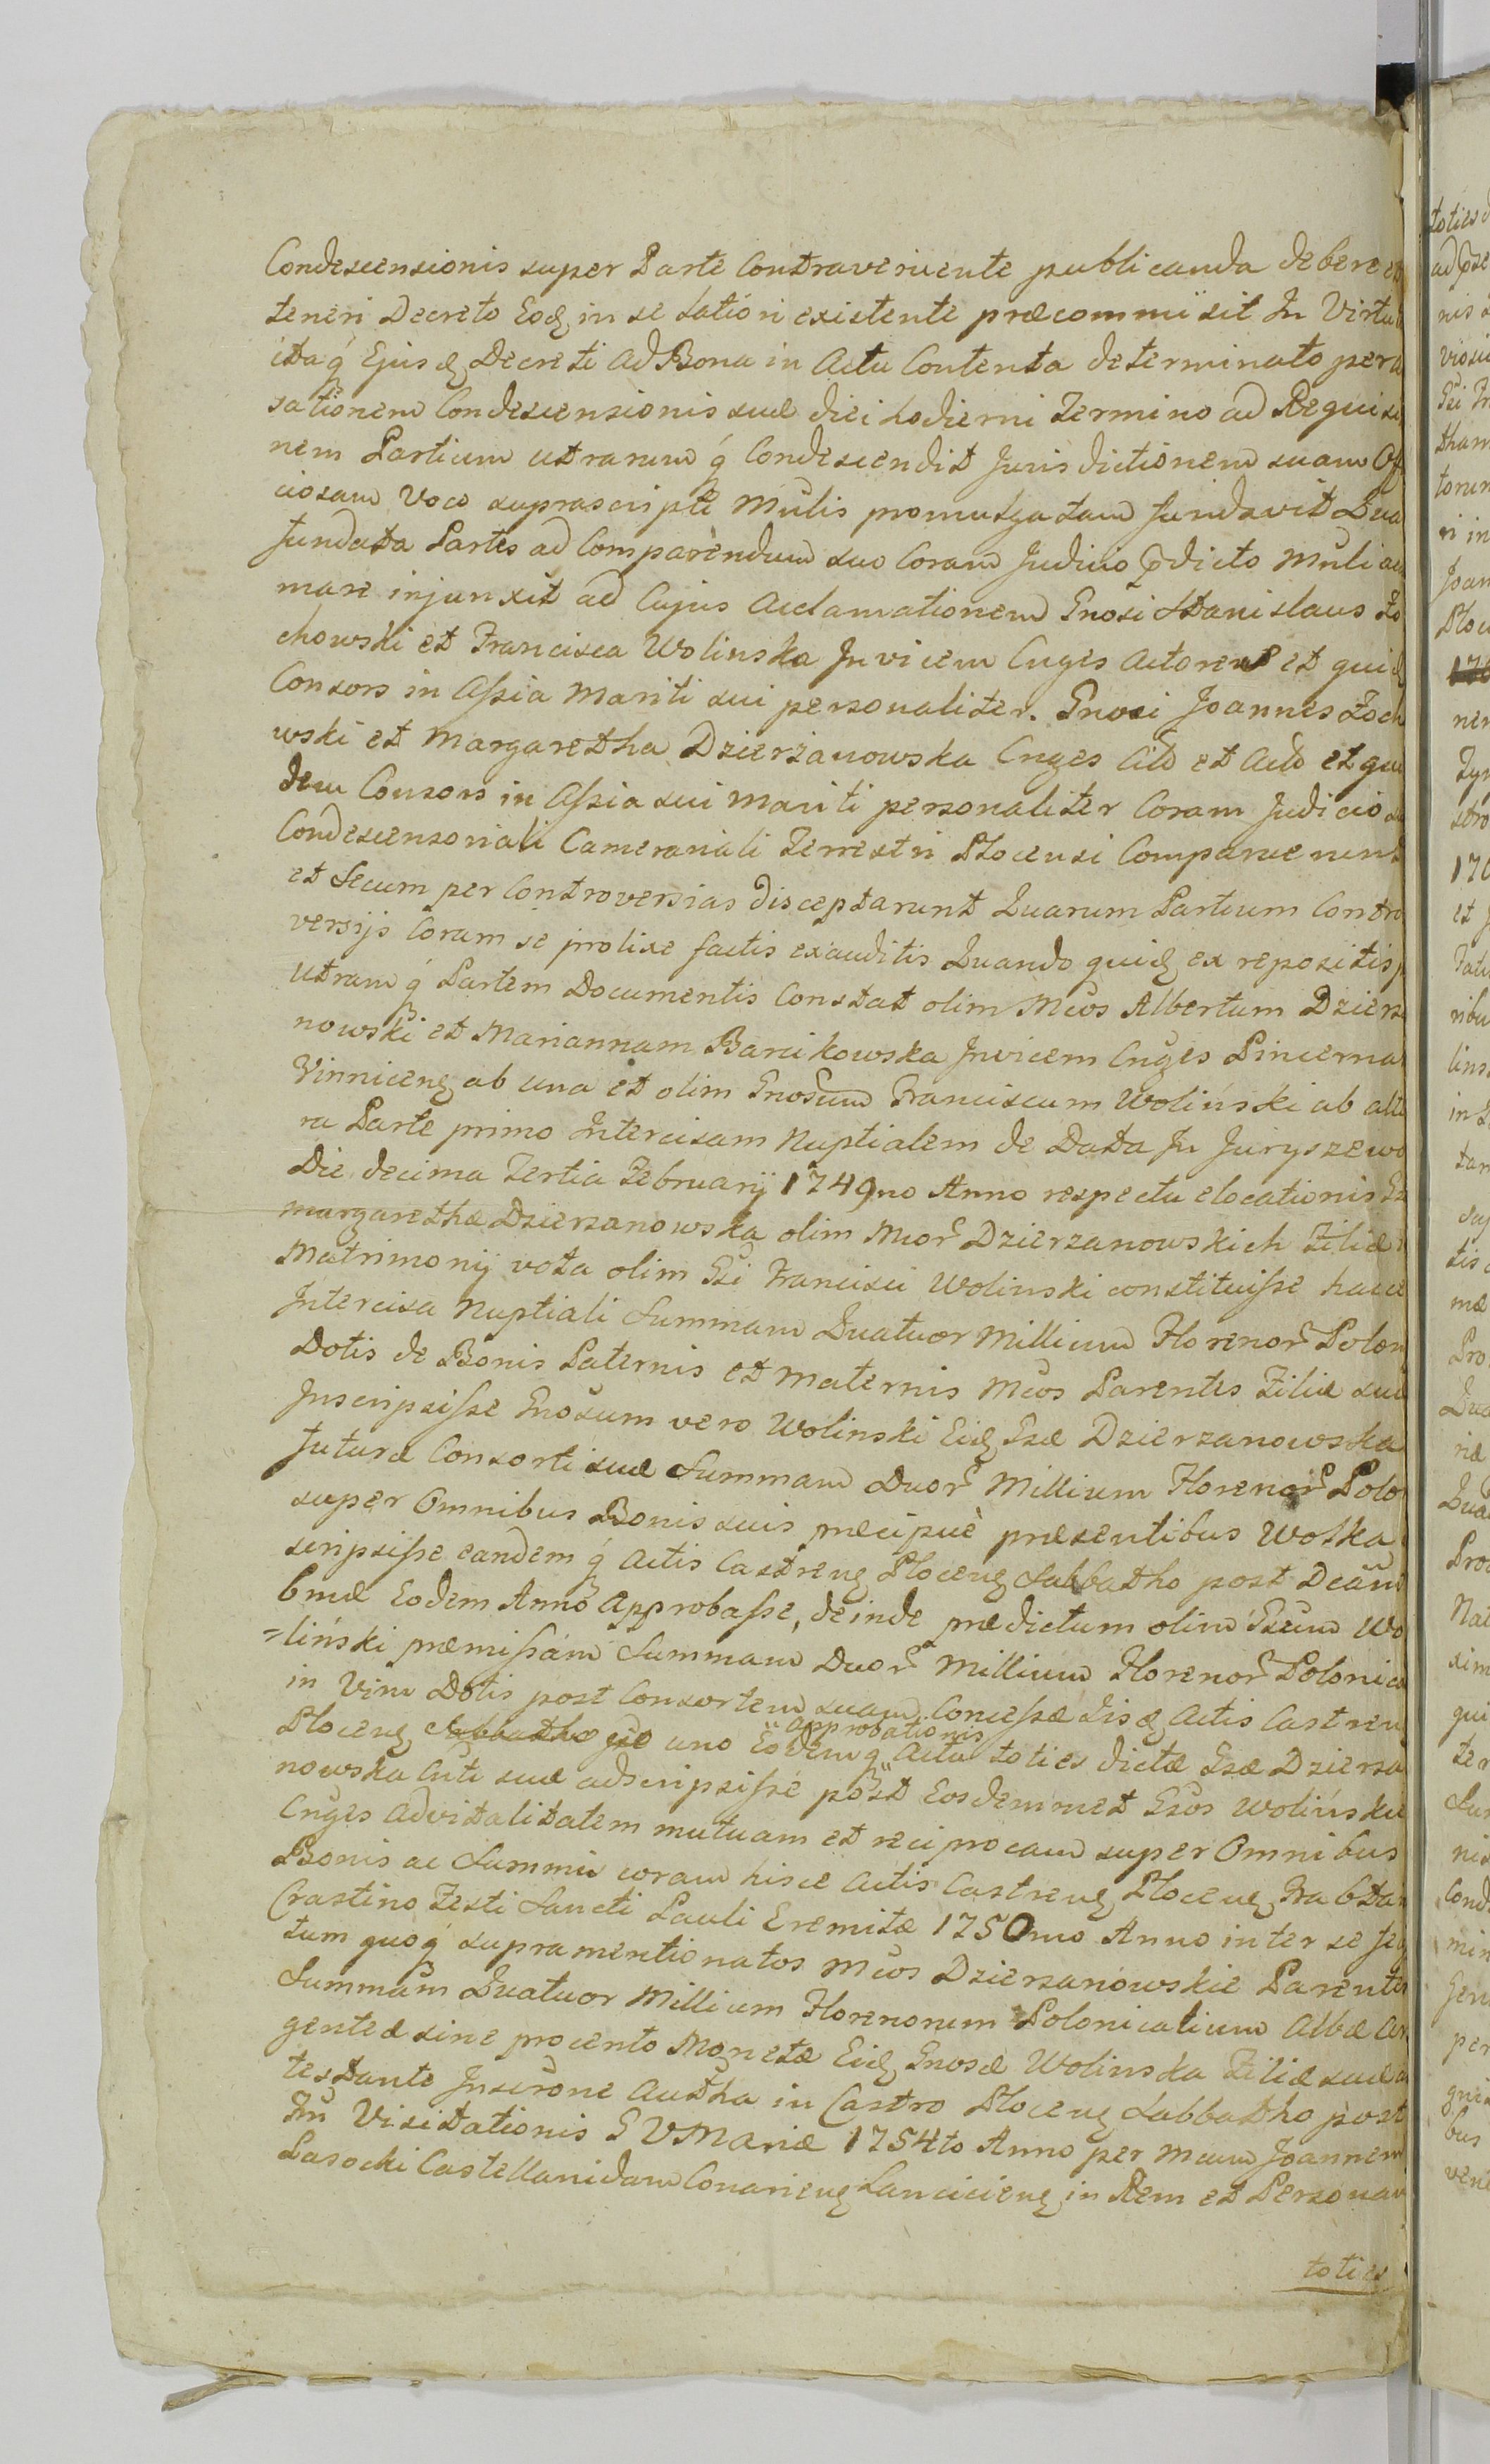 Condescensionis super Parte Contraveniente publicanda debere et
teneri Decreto Eoq in se latiori existente præcommisit In Virtu
itaq Ejusq Decreti ad Bona in Actu Contenta determinato per
sationem Condescensionis suæ diei hodierni Termino ad Requisi
nem Partium utrarumq Condescendit Jurisdictionem suam Of
ciosam Voce suprascripti Mnlis promulgatam fundavit Qua
fundata Partes ad Comparendum suo Coram Judicio pdicto Mnli
mare injunxit ad Cujus Acclamationem Gnosi Stanislaus Zo
chowski et Francisca Wolinska Invicem Cnges Actores et quid
Consors in Assia Mariti sui personaliter. Gnosi Joannes Zoch
wski et Margaretha Dzierżanowska Cnges Citt et Actt et qui
dem Consors in Assia sui Mariti personaliter Coram Judicio
Condescensoriali Camerariali Terrestri Plocensi Comparuerunt
et Secum per Controversias disceptarunt Quarum Partium Contro
versijs Coram se prolixe factis exauditis Quando quidq ex repositis p
Utramq Partem Documentis Constat olim Mcos Albertum Dzierz
nowski et Mariannam Barcikowska Invicem Cnges Pincerna
Vinnicenq ab una et olim Gnosum Franciscum Woliński ab alte
ra Parte primo Intercisam Nuptialem de Data In Juryszewo
Die decima Tertia Februarij 1749no Anno respectu elocationis
Margarethæ Dzierzanowska olim Mcor Dzierzanowskich Filiæ
Matrimonij vota olim Gsi Francisci Wolinski constituisse hacce
Intercisa Nuptiali Summam Quatuor Millium Florenor Polon
Dotis de Bonis Paternis et Maternis Mcos Parentes Filiæ suæ
Inscripsisse Gnosum vero Wolinski Eidq Gsæ Dzierzanowska
futuræ Consorti suæ Summam Duor Millium Florenor Polo
super Omnibus Bonis suis præcipuè præsentibus Wolka
scripsisse eandemq Actis Castrenq Plocenq Sabbatho post Dcam
bmæ Eodem Anno Approbasse, deinde prædictum olim Gsum Wo
=liński præmissam Summam Duor Millium Florenor Polonica
in Vim Dotis post Consortem suam Concessæ Iisq Actis Castren
approbationis
Plocenq Sabbatho uno Eodemq Actu toties dictæ Gsæ Dzierza
nowska Csti suæ adscripsisse post Eosdemmet Gsos Wolińskie
Cnges Advitalitatem mutuam et reciprocam super Omnibus
Bonis ac Summis coram hisce Actis Castrenq Plocenq
Crastino Festi Sancti Pauli Eremitæ 1750mo Anno inter se
tum quoq supramentionatos Mcos Dzierzanowskie Parentes
Summam Quatuor Millium Florenorum Polonicalium Albæ Ar
genteæ sine procento Monetæ Eidq Gnosæ Wolinska Filiæ suæ
testante Inscrone Autha in Castro Plocenq Sabbatho post
Visitationis B V Mariæ 1754to Anno per Mcum Joannem
Lasocki Castellanidam Conarienq Lancicienq in Rem et Personam
toties